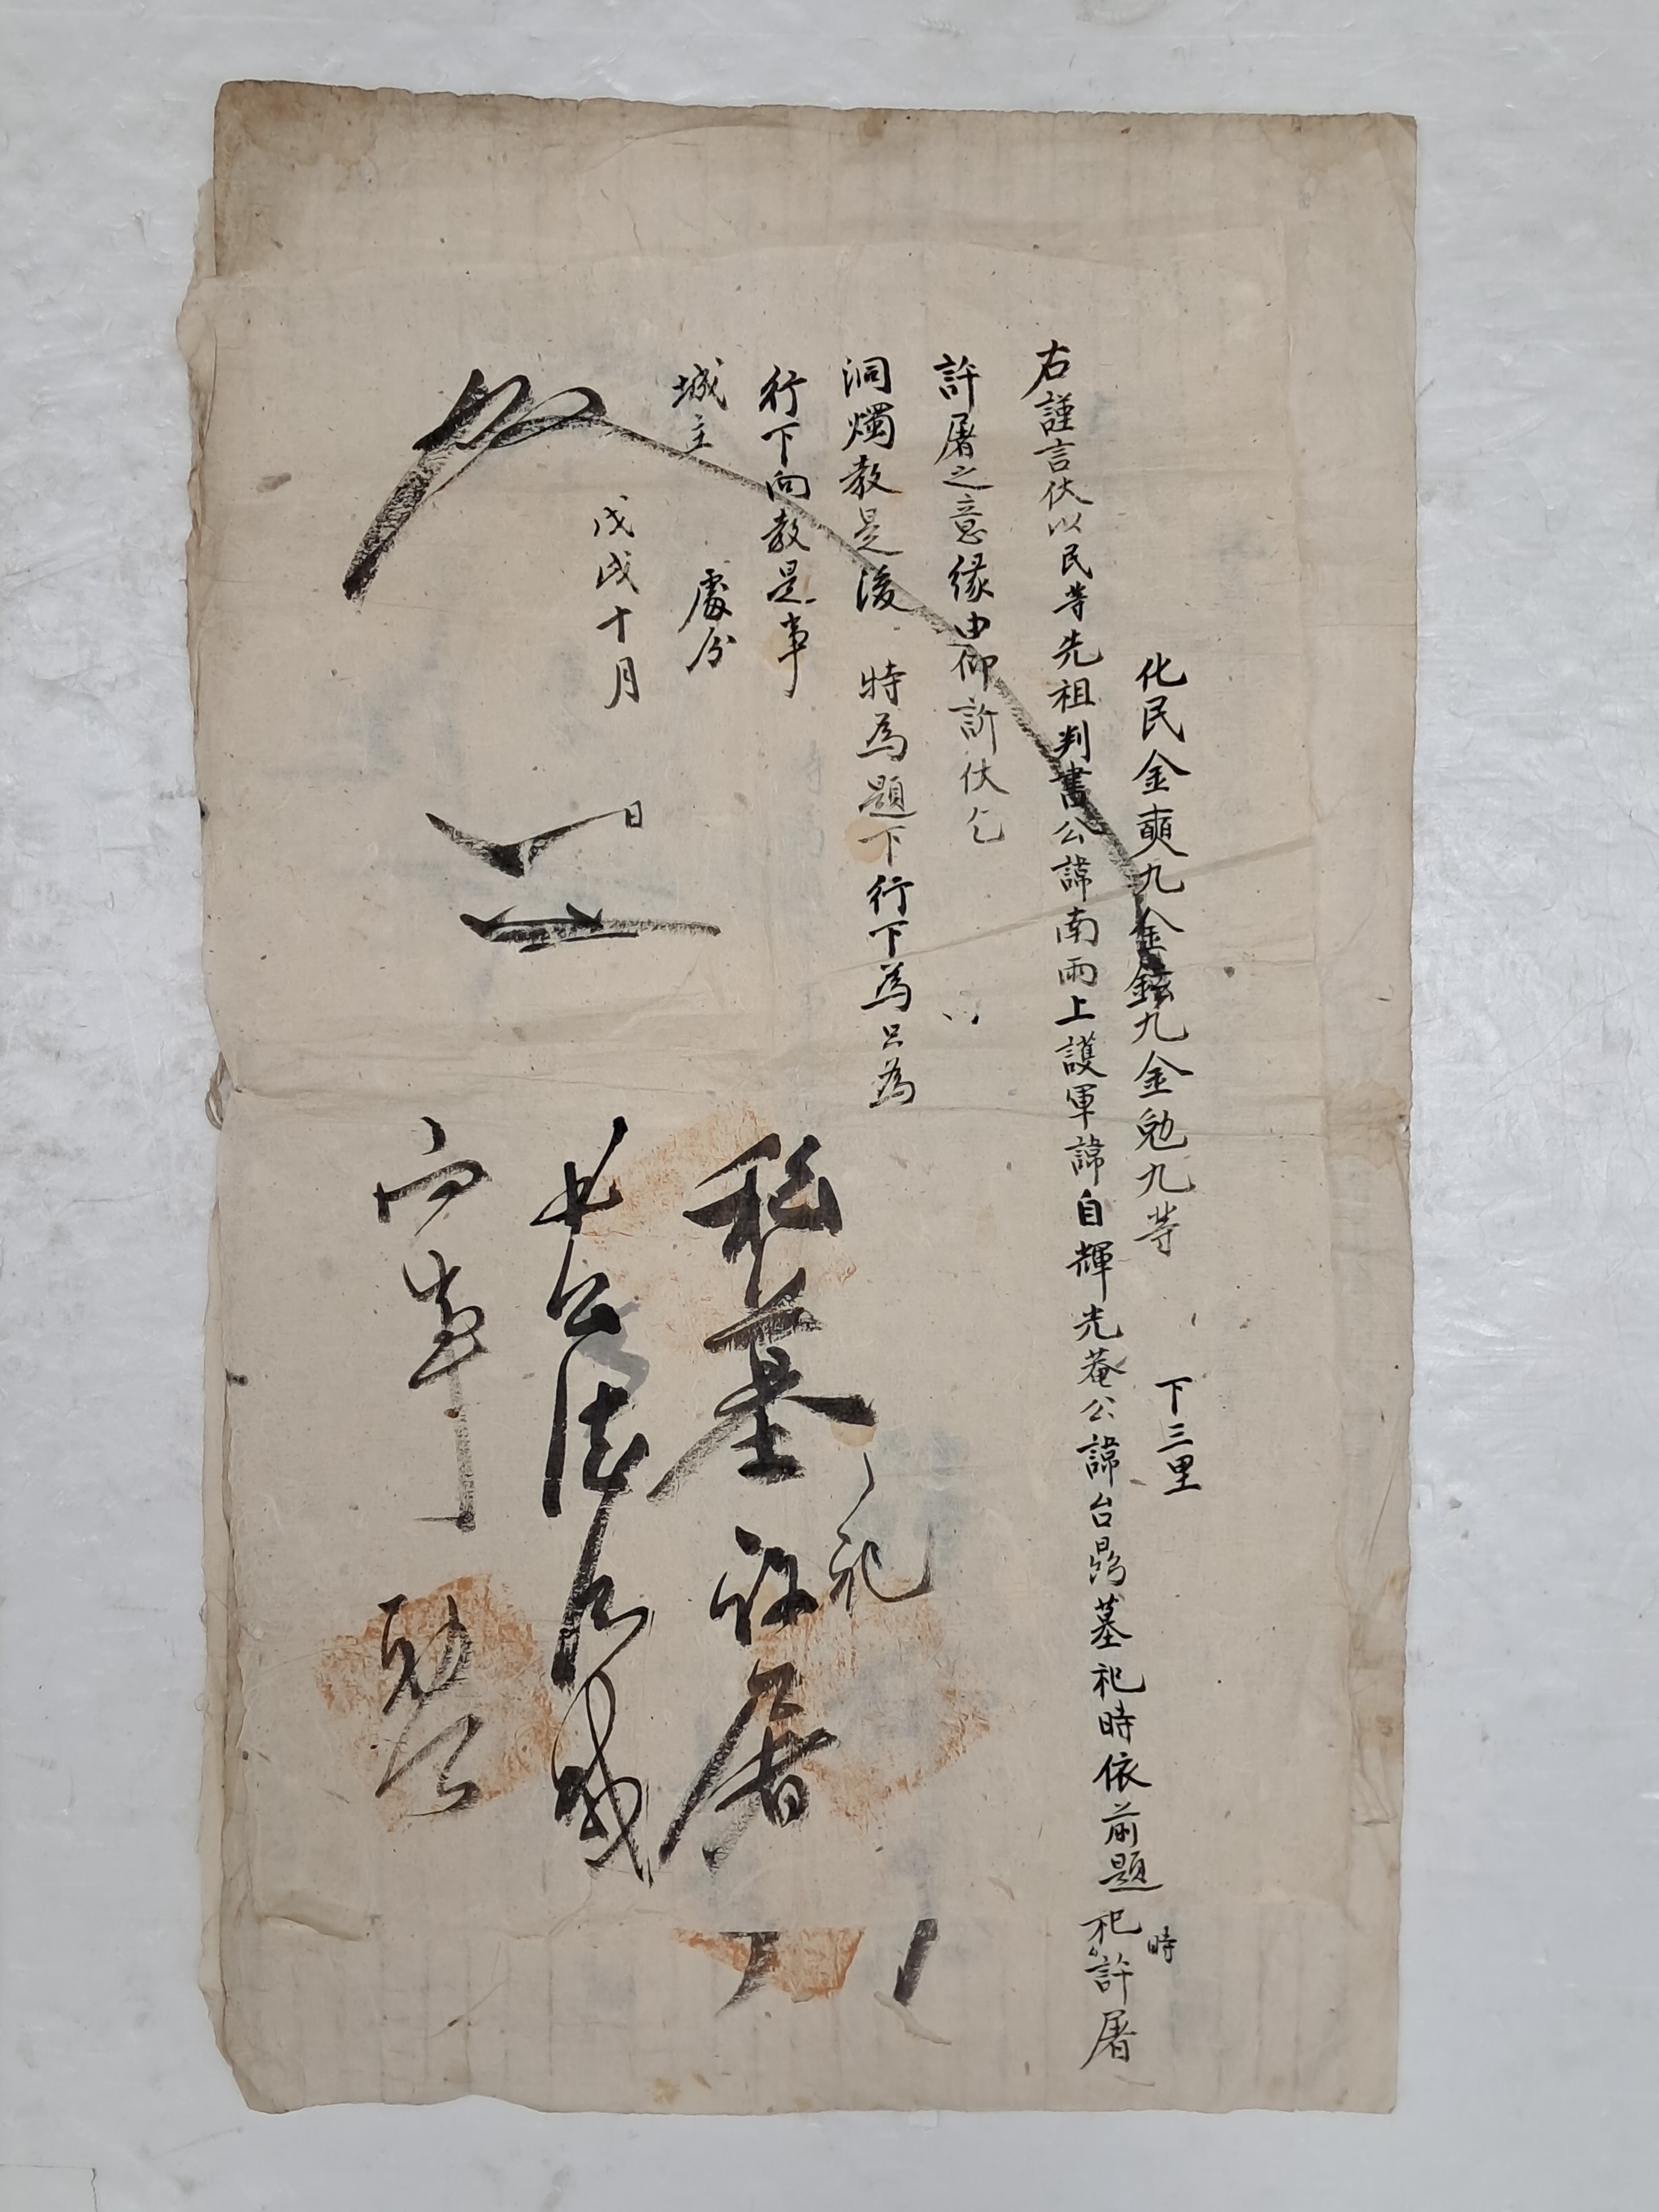 下三里
化民金奭九金鉉九金勉九等
右謹言伏以民等先祖判書公諱南雨上護軍諱自輝光菴公諱台鼎墓祀時依前題祀時許屠
許屠之意緣由仰訴伏乞
洞燭敎是後 特爲題下行下爲只爲
行下向敎是事
城主 處分
戊戌十月 日
祀
私墓許屠
向事